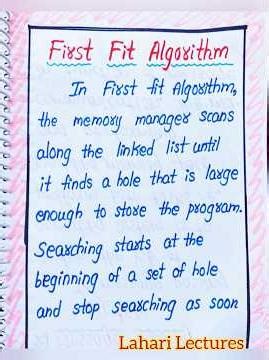 First Fit Algorithm
In First fit Algorithm,
the memory manager scans
along the linked list until
it finds a hole that is large
enough to store the program.
Searching starts at the
beginning of a set of hole
and stop searching as soon
Lahari Lectures